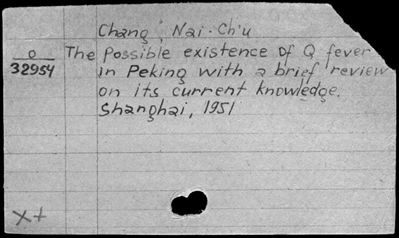 Chang, Nai-Ch'u
O
32954
The possible existence of Q fever
in Peking with a brief review
on its current knowledge.
Shanghai, 1951
X+